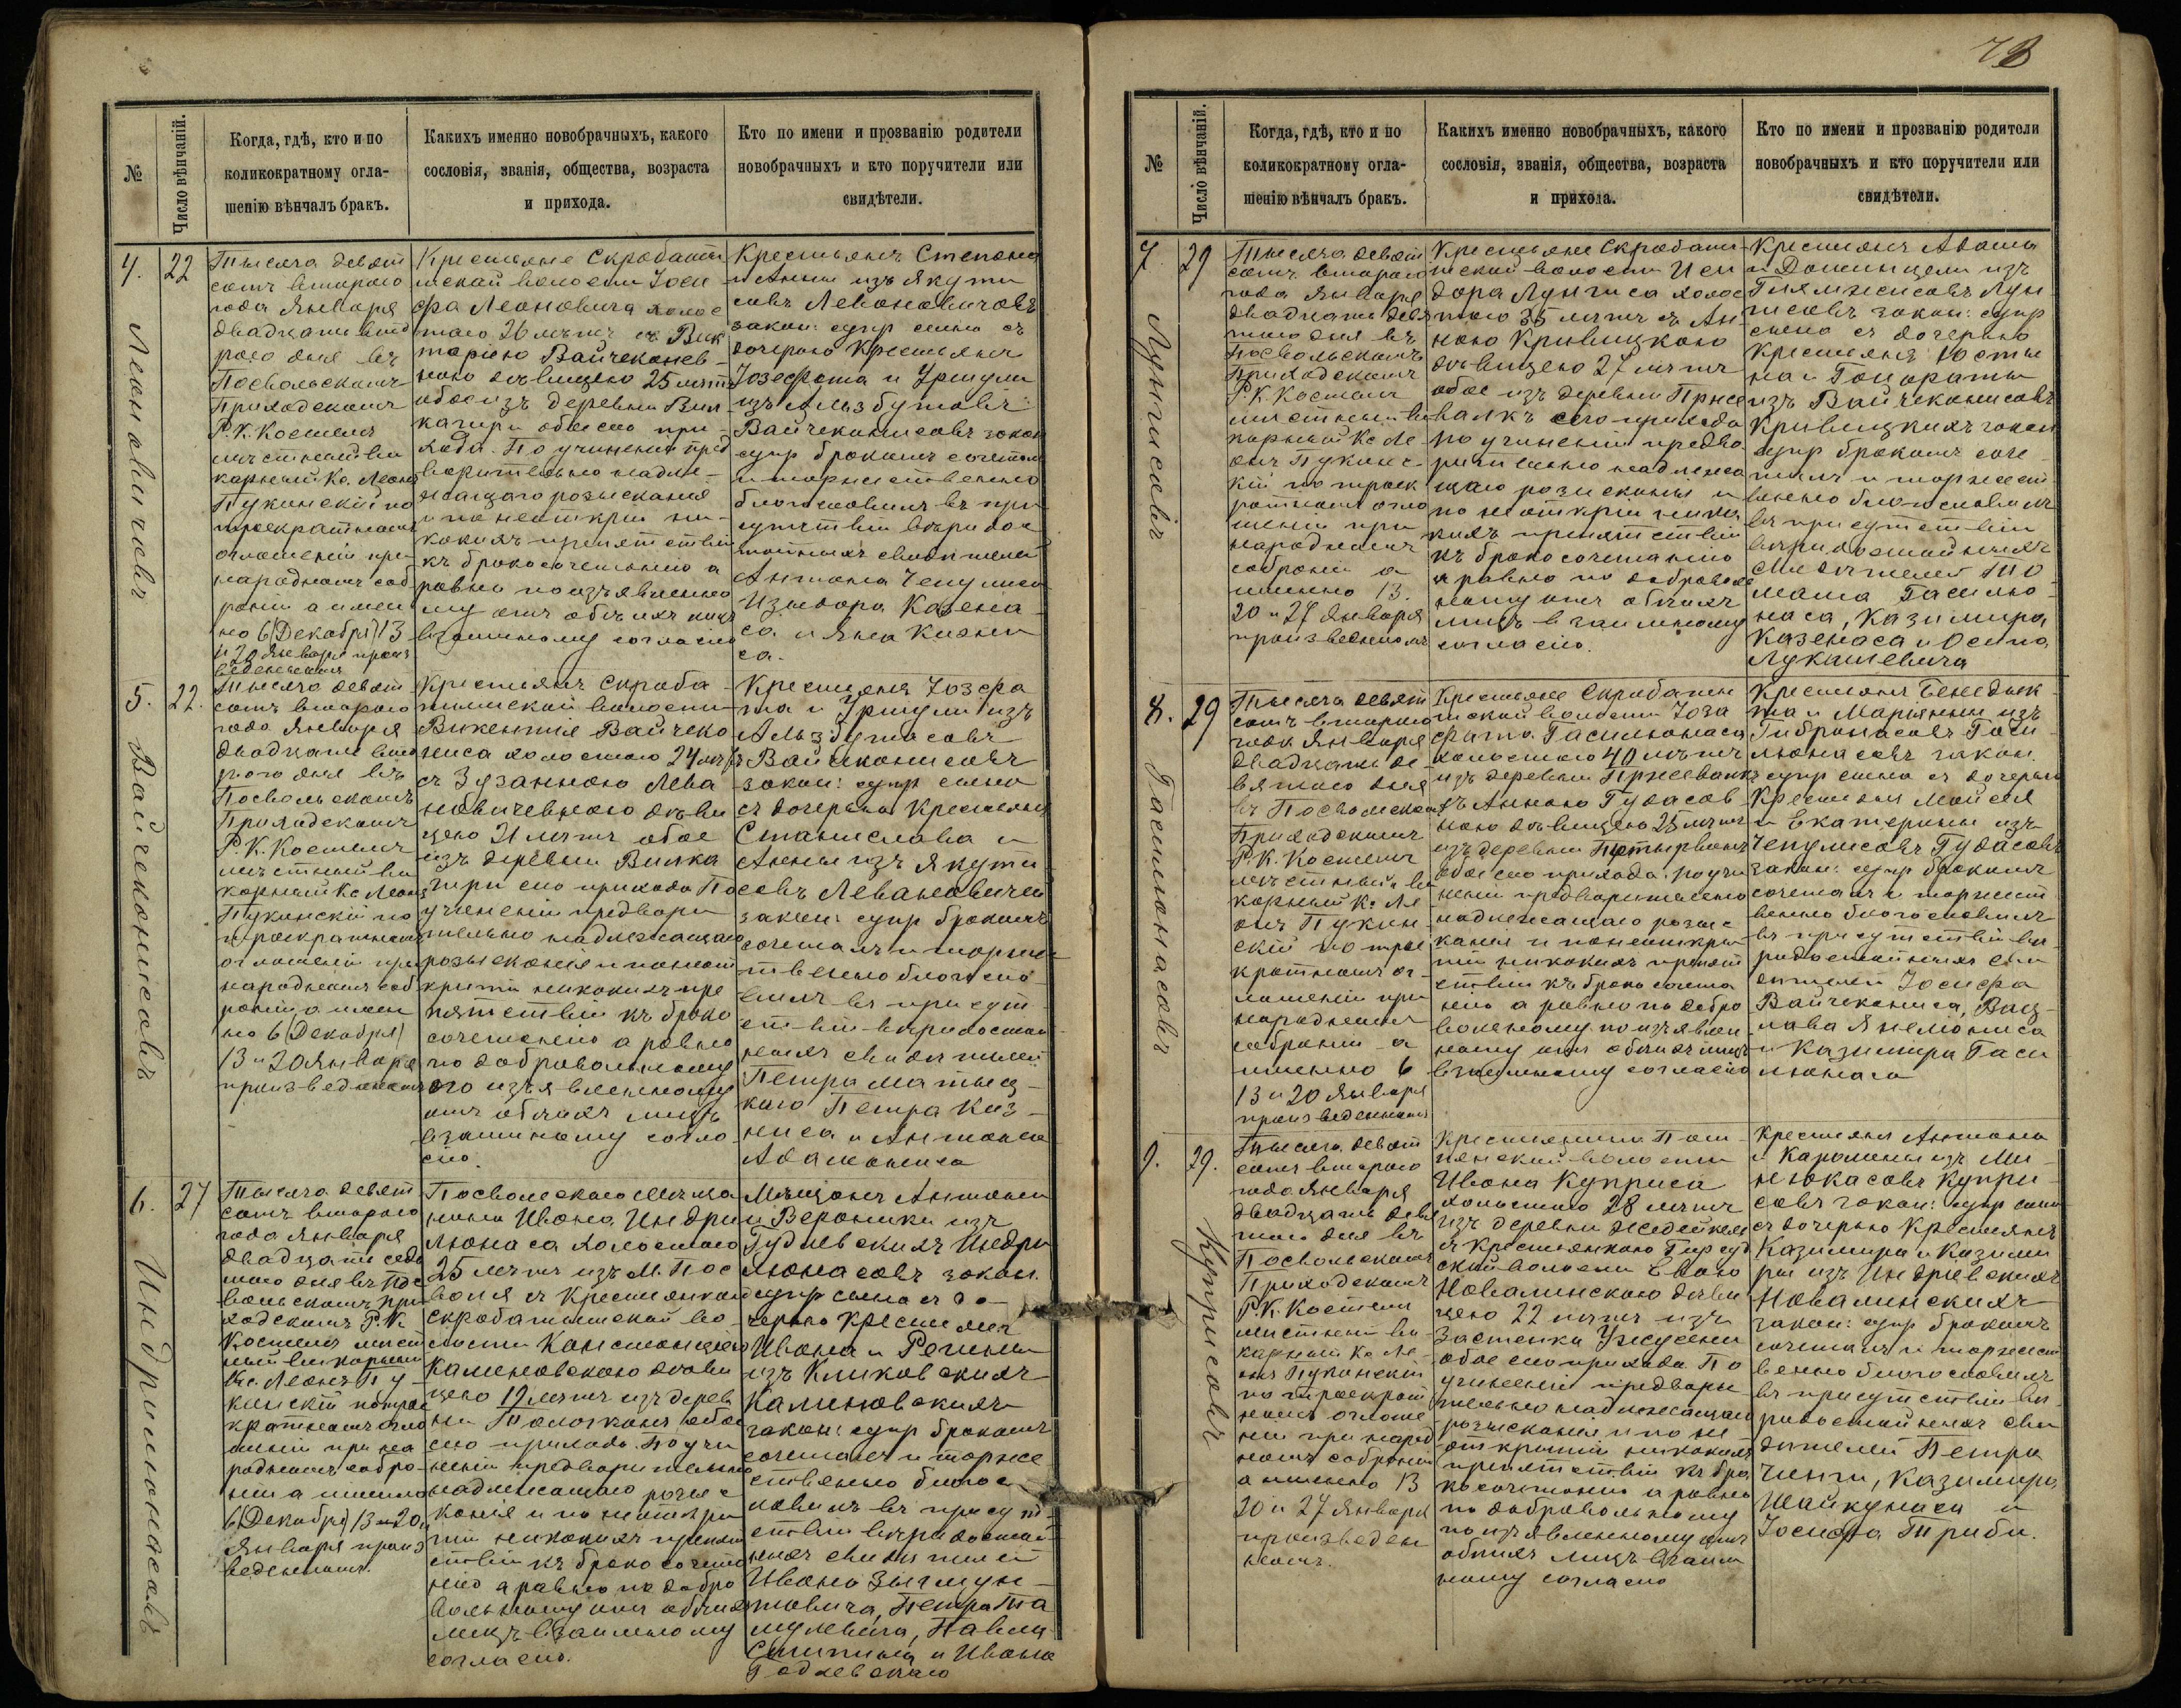 78
№
Число вѣнчаній.
Когда, гдѣ, кто и по
коликократному огла-
шенію вѣнчалъ бракъ.
Какихъ именно новобрачныхъ, какого
сословія, званія, общества, возраста
и прихода.
Кто по имени и прозванію родители
новобрачныхъ и кто поручители или
свидѣтели.
4.
22
Леоновичовъ
Тысяча девят
сотъ второго
года Января
двадцать вто
рого дня въ
Посвольскомъ
Приходскомъ
Р. К. Костелѣ
мѣстный ви
карный Кс. Леонъ
Пукинскій по
троекратномъ
оглашеніи при
народномъ соб
раніи а имен
но 6 (Декабря) 13
и 20 Января произ
веденномъ
Крестьяне Скробот
ской волости Іоси
фа Леоновича холос
таго 26 лѣтъ съ Вик
торіею Вайчеконев-
ною дѣвицею 25 лѣтъ
обое изъ деревни Вил
кагири обѣ сего при-
хода. По учиненіи пред
варительно надле-
жащаго розысканія
и по неоткрытіи ни-
какихъ препятствій
къ бракосочетанію а
равно по изъявленно
му отъ обѣихъ лицъ
взаимному согласію
Крестьянъ Степана
и Анны изъ Якути
совъ Левоновичовъ
закон: супр сына съ
дочерью Крестьянъ
Іозефата и Уршули
изъ Альзбутовъ
Вайчеконисовъ закон
супр бракомъ сочетал
и торжественно
благословилъ въ при
сутствіи вѣридос
тойныхъ свидѣтелей
Антона Чепулиса
Изыдора Казена-
са и Яна Казени
са.
5.
22.
Вайчеконисовъ
Тысяча девят
сотъ второго
года Января
двадцать вто
рого дня въ
Посвольскомъ
Приходскомъ
Р. К. Костелѣ
мѣстный ви
карный Кс Леонъ
Пукинскій по
троекратномъ
оглашеніи при
народномъ соб
раніи а имен
но 6 (Декабря)
13 и 20 Января
произведенномъ
Крестьянъ Скроба-
тишской волости
Викентія Вайчеко
ниса холостого 24 лѣтъ
съ Зузанною Лева
новичевною дѣви
цею 21 лѣтъ обое
изъ деревни Вилка
гири сего прихода По
учиненіи предвари
тельно надлежащаго
розысканія и по неот
крытіи никакихъ пре
пятствій къ брако
сочетанію а равно
по добровольному
его изъявленному
отъ обѣихъ лицъ
взаимному согла
сію.
Крестьянъ Іозефа
та и Уршули изъ
Альзбутасовъ
Вайчеконисовъ
закон: супр сына
съ дочерью Крестьянъ
Станислава и
Анны изъ Якути
совъ Левановичей
закон: супр бракомъ
сочеталъ и торже-
твенно благосло-
вилъ въ присут-
ствіи вѣридостой
ныхъ свидѣтелей
Петра Матыц-
каго Петра Каз-
ниса и Антона
Адамониса
6.
27
Индрилюнасовъ
Тысяча девят
сотъ второго
года Января
двадцать седь
маго дня въ Пос
вольскомъ При
ходскомъ Р. К.
Костелѣ мѣст
ный викарный
Кс. Леонъ Пу-
кинскій по трое
кратномъ огла
шеніи при на
родномъ собра-
ніи а именно
6 (Декабря) 13 и 20
Января произ
веденномъ.
Посвольскаго мѣща
нина Ивана Индри
люнаса холостаго
25 лѣтъ изъ М. Пос
воля съ Крестьянкою
Скробатишской во-
лости Констанціею
Калиновскою дѣви
цею 19 лѣтъ изъ дерев
ни Толочканъ обое
сего прихода. По учи
неніи предварительно
надлежащаго розыс
канія и по неоткры
тіи никакихъ препят
ствій къ бракосочета
нію а равно по добро
вольному отъ обѣихъ
лицъ взаимному
согласію.
Мѣщанъ Антона
и Вероники изъ
Гудлевскихъ Индри
люнасовъ закон.
супр сына съ до-
черью Крестьянъ
Ивана и Регины
изъ Климовскихъ
Калиновскихъ
закон: супр бракомъ
сочеталъ и торже
ственно благос
ловилъ въ присут
ствіи вѣридостой
ныхъ свидѣтелей
Ивана Зыгмун-
товича, Петра Та
мулевича, Павла
и Ивана
Годлевскаго
№
Число вѣнчаній.
Когда, гдѣ, кто и по
коликократному огла-
шенію вѣнчалъ бракъ.
Какихъ именно новобрачныхъ, какого
сословія, званія, общества, возраста
и прихода.
Кто по имени и прозванію родители
новобрачныхъ и кто поручители или
свидѣтели.
7
29
Лунгисовъ
Тысяча девят
сотъ второго
года Января
двадцать девя
таго дня въ
Посвольскомъ
Приходскомъ
Р. К. Костелѣ
мѣстный ви
карный Кс Ле
онъ Пукинс-
кій по троек
ратномъ огла
шеніи при
народномъ
собраніи а
именно 13.
20 и 27 Января
произведенномъ
Крестьяне Скробати-
шской волости Иси
дора Лунгиса холос
таго 35 лѣтъ съ Ан-
ною Кривицкою
дѣвицею 27 лѣтъ
обое изъ деревни Прысе
валкъ сего прихода
По учиненіи предва
рительно надлежа
щаго розысканія и
по неоткрытіи ника
кихъ препятствій
къ бракосочетанію
а равно по доброволь
ному отъ обѣихъ
лицъ взаимному
согласію.
Крестьянъ Адама
и Доминицели изъ
Гилянжисовъ Лун
гисовъ закон: супр
сына съ дочерью
Крестьянъ Юсты
на и Гонораты
изъ Вайчеконисовъ
Кривицкихъ закон
супр бракомъ соче
талъ и торжест
венно благословилъ
въ присутствіи
вѣридостойныхъ
свидѣтелей То
маша Гасилю-
наса, Казимира
Казенаса и Осипа
Лукашевича
8.
29
Гасилюнасовъ
Тысяча девят
сотъ второго
года Января
двадцать де-
вятаго дня
въ Посвольском
Приходскомъ
Р. К. Костелѣ
мѣстный ви
карный Кс Ле
онъ Пукин
скій по трое
кратномъ ог-
лашеніи при
народномъ
собраніи а
именно 6
13 и 20 Января
произведенномъ
Крестьяне Скробати
шской волости Іоза
фата Гасилюнаса
холостаго 40 лѣтъ
изъ деревни Прысевалкъ
съ Анною Гудасов
ною дѣвицею 25 лѣтъ
изъ деревни
обое сего прихода. По учи
неніи предварительно
надлежащаго розыс
канія и по неоткры
тіи никакихъ препят
ствій къ бракосочета
нію а равно по добро
вольному по изъявлен
ному отъ обѣихъ лицъ
взаимному согласію
Крестьянъ Бенедык
та и Маріянны изъ
Гибронасовъ Гаси
люнасовъ закон.
супр сына съ дочерью
Крестьянъ Мойсея
и Екатерины изъ
Чепулисовъ Гудасовъ
закон: супр бракомъ
сочеталъ и торжест
венно благословилъ
въ присутствіи вѣ-
ридостойныхъ сви
дѣтелей Іосифа
Вайчекониса, Вац-
лава Янелюниса
и Казимира Гаси
люнаса
9.
29.
Куприсовъ
Тысяча девят
сотъ второго
года Января
двадцать девя
таго дня въ
Посвольскомъ
Приходскомъ
Р. К. Костелѣ
мѣстный ви-
карный Кс Ле
онъ Пукинскій
по троекрат
номъ оглаше
ніи при народ
номъ собраніи
а именно 13
20 и 27 Января
произведен
номъ.
Крестьянина Пом-
пянской волости
Ивана Куприса
холостаго 28 лѣтъ
изъ деревни
съ Крестьянкою Гирсуд
ской волости Евою
Новалинскою дѣви
цею 22 лѣтъ изъ
Застенка Ужусени
обое сего прихода. По
учиненіи предвари
тельно надлежащаго
розысканія и по не
открытіи никакихъ
препятствій къ бра
косочетанію а равно
по добровольному
по изъявленному отъ
обѣихъ лицъ взаим
ному согласію
Крестьянъ Антона
и Каролины изъ Ми-
нюкасовъ Купри-
совъ закон: супр сына
съ дочерью Крестьянъ
Казимира и Казими
ры изъ Индріевскихъ
Новалинскихъ
закон: супр бракомъ
сочеталъ и торжест
венно благословилъ
въ присутствіи вѣ-
ридостойныхъ сви
дѣтелей Петра
Чинги, Казимира
Шайкунаса и
Іосифа Триби.